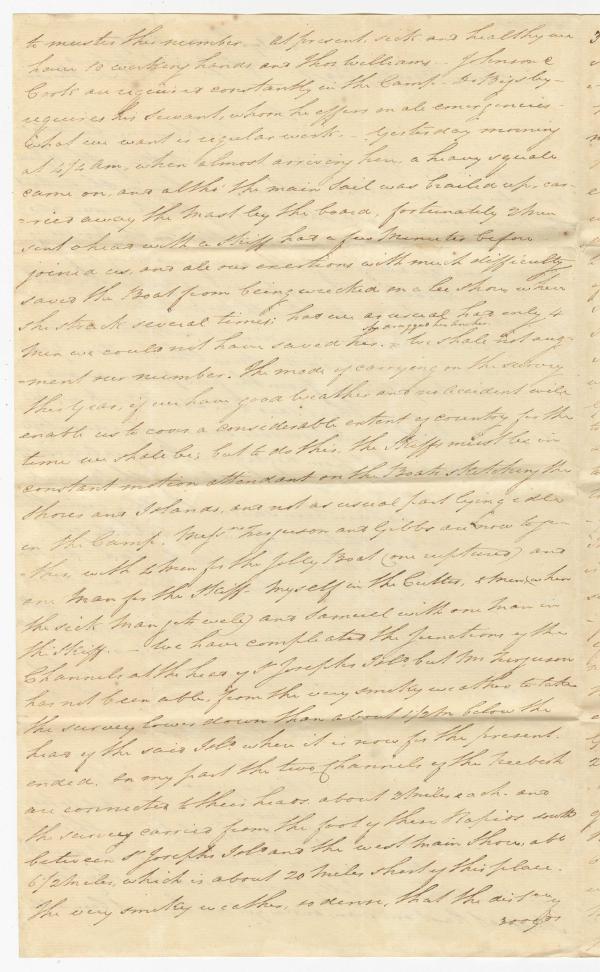 to muster this number – at present, sick and healthy we
have 10 working hands and Thos Williams – Johnson &
Cook are required constantly in the Camp – Dr Bigsby –
requires his Servant, whom he offers in all emergencies –
What we want is regular work. – Yesterday morning
at 4¼ Am, when almost arriving here, a heavy squall
came on, and altho' the main sail was brailed up, car-
-ried away the Mast by the board, fortunately 2 Men
sent ahead with a Skiff had a few Minutes before
joined us, and all our exertions with much difficulty
saved the Boat from being wrecked on a lee Shore, where
she struck several times; had we as usual had only 4
Men we could not have saved her. – We shall not aug-
-ment our number. The mode of carrying on the survey
this Year, if we have good weather and no accident will
enable us to cover a considerable extent of country for the
time we shall be; but to do this, the Skiffs must be in
constant motion attendant on the Boats sketching the
Shores and Islands, and not as usual part lying idle
in the Camp. Messrs Ferguson and Gibbs are now toge-
-ther, with 4 Men for the Jolly Boat (one ruptured) and
one Man for the Skiff – Myself in the Cutter, Men (when
the sick Man gets well) and Samuel with one Man in
the Skiff. – We have completed the junctions of the
Channels at the head of St Josephs Isld but Mr Ferguson
has not been able, from the very smoky weather to take
the survey lower down than about 1½ Mm below the
head of the said Isld, where it is now for the present
ended. On my part the two Channels of the Neebish
are connected to their heads, about 2 Miles each – and
the survey carried from the foot of these Rapids south
between St Josephs Isld and the west main Shore, abt
6½ Miles, which is about 20 Miles short of this place.
The very smoky weather, so dense, that the dist